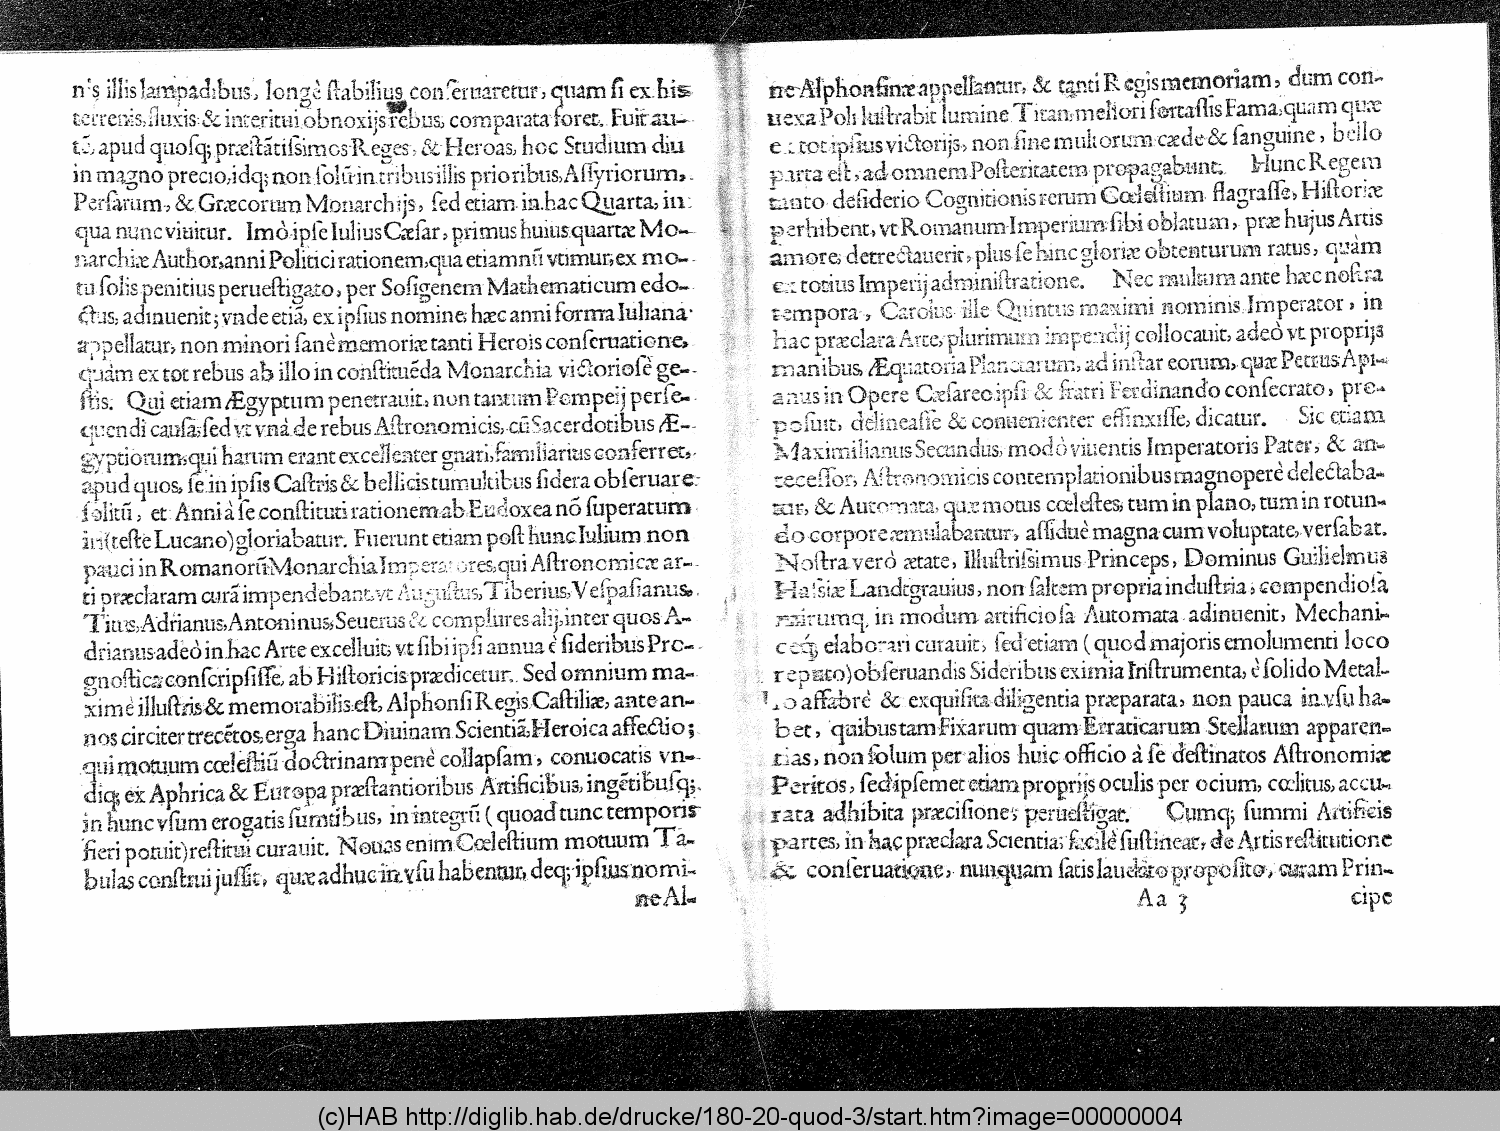 nis illis lampadibus, longè ſtabilius conſeruaretur, quam ſi ex his
terrenis, fluxis & interitui obnoxijs rebus, comparata foret. Fuit au-
tē, apud quoſq; præſtātiſsimos Reges, & Heroas, hoc Studium diu
in magno precio, idq; non ſolū in tribus illis prioribus, Aſſyriorum,
Perſarum, & Græcorum Monarchijs, ſed etiam in hac Quarta, in
qua nunc viuitur. Imò ipſe Iulius Cæſar, primus huius quartæ Mo-
narchiæ Author, anni Politici rationem, qua etiamnū vtimur, ex mo-
tu ſolis penitius perueſtigato, per Soſigenem Mathematicum edo-
ctus, adinuenit; vnde etiā, ex ipſius nomine, hæc anni forma Iuliana
appellatur, non minori ſanè memoriæ tanti Herois conſeruatione,
quàm ex tot rebus ab illo in conſtituēda Monarchia victorioſè ge-
ſtis. Qui etiam Ægyptum penetrauit, non tantum Pompeij perſe-
quendi cauſa, ſed vt vnà de rebus Aſtronomicis, cū Sacerdotibus Æ-
gyptiorum, qui harum erant excellenter gnari, familiarius conferret,
apud quos, ſe in ipſis Caſtris & bellicis tumultibus ſidera obſeruare
ſolitū, et Anni à ſe conſtituti rationem ab Eudoxea nō ſuperatum
iri (teſte Lucano) gloriabatur. Fuerunt etiam poſt hunc Iulium non
pauci in Romanorū Monarchia Imperatores, qui Aſtronomicæ ar-
ti præclaram curā impendebant, vt Auguſtus, Tiberius, Veſpaſianus,
Titus, Adrianus, Antoninus, Seuerus & complures alij, inter quos A-
drianus adeò in hac Arte excelluit, vt ſibi ipſi annua è ſideribus Pro-
gnoſtica conſcripſiſſe, ab Hiſtoricis prædicetur. Sed omnium ma-
ximè illuſtris & memorabilis eſt, Alphonſi Regis Caſtiliæ, ante an-
nos circiter trecētos, erga hanc Diuinam Scientiā, Heroica affectio;
qui motuum cœleſtiū doctrinam penè collapſam, conuocatis vn-
diq; ex Aphrica & Europa præſtantioribus Artificibus, ingētibuſq;
in hunc vſum erogatis ſumtibus, in integrū (quoad tunc temporis
fieri potuit) reſtitui curauit. Nouas enim Cœleſtium motuum Ta-
bulas conſtrui juſſit, quæ adhuc in vſu habentur, deq; ipſius nomi-
ne Al-
ne Alphonſinæ appellantur, & tanti Regis memoriam, dum con-
uexa Poli luſtrabit lumine Titan, meliori fortaſſis Fama, quam quæ
ex tot ipſius victorijs, non ſine multorum cæde & ſanguine, bello
parta eſt, ad omnem Poſteritatem propagabunt. Hunc Regem
tanto deſiderio Cognitionis rerum Cœleſtium flagraſſe, Hiſtoriæ
perhibent, vt Romanum Imperium ſibi oblatum, præ hujus Artis
amore, detrectauerit, plus ſe hinc gloriæ obtenturum ratus, quàm
ex totius Imperij adminiſtratione. Nec multum ante hæc noſtra
tempora, Carolus ille Quintus maximi nominis Imperator, in
hac præclara Arte, plurimum impendij collocauit, adeò vt proprijs
manibus, Æquatoria Planetarum, ad inſtar eorum, quæ Petrus Api-
anus in Opere Cæſareo ipſi & fratri Ferdinando conſecrato, pro-
poſuit, delineaſſe & conuenienter effinxiſſe, dicatur. Sic etiam
Maximilianus Secundus, modò viuentis Imperatoris Pater, & an-
teceſſor, Aſtronomicis contemplationibus magnoperè delectaba-
tur, & Automata, quæ motus cœleſtes, tum in plano, tum in rotun-
do corpore æmulabantur, aſſiduè magna cum voluptate, verſabat.
Noſtra verò ætate, Illuſtriſsimus Princeps, Dominus Guilielmus
Haſsiæ Landtgrauius, non ſaltem propria induſtria, compendioſa
nimirumq, in modum artificioſa Automata adinuenit, Mechani-
ceq́; elaborari curauit, ſed etiam (quod majoris emolumenti loco
reputo) obſeruandis Sideribus eximia Inſtrumenta, è ſolido Metal-
lo affabrè & exquiſita diligentia præparata, non pauca in vſu ha-
bet, quibus tam Fixarum quam Erraticarum Stellarum apparen-
tias, non ſolum per alios huic officio à ſe deſtinatos Aſtronomiæ
Peritos, ſed ipſemet etiam proprijs oculis per ocium, cœlitus, accu-
rata adhibita præciſione, perueſtigat. Cumq; ſummi Artificis
partes, in hac præclara Scientia, facilè ſuſtineat, de Artis reſtitutione
& conſeruatione, nunquam ſatis laudato propoſito, curam Prin-
Aa 3 cipe
(c)HAB http://diglib.hab.de/drucke/180-20-quod-3/start.htm?image=00000004